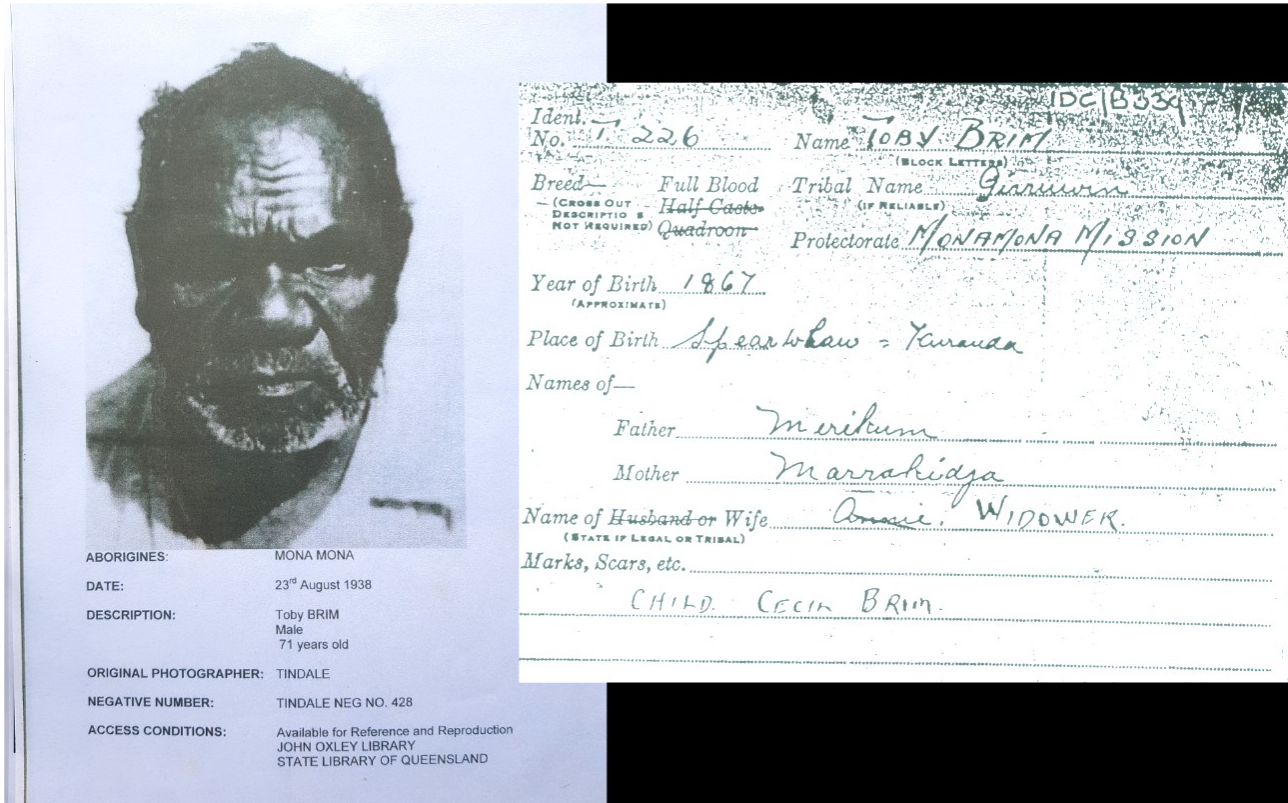 ABORIGINES: MONA MONA
DATE: 23rd August 1938
DESCRIPTION: Toby BRIM
Male
71 years old
ORIGINAL PHOTOGRAPHER: TINDALE
NEGATIVE NUMBER: TINDALE NEG NO. 428
ACCESS CONDITIONS: Available for Reference and Reproduction
JOHN OXLEY LIBRARY
STATE LIBRARY OF QUEENSLAND
IDC/B339
Ident. No. T 226 Name TOBY BRIM
(BLOCK LETTERS)
Breed— Full Blood Tribal Name
(CROSS OUT DESCRIPTIO S NOT REQUIRED) Half Caste (IF RELIABLE)
Quadroon Protectorate MONAMONA MISSION
Year of Birth 1867
(APPROXIMATE)
Place of Birth = Kuranda
Names of—
Father Merikum
Mother Marrakidja
Name of Husband or Wife Annie. WIDOWER.
(STATE IF LEGAL OR TRIBAL)
Marks, Scars, etc.
CHILD. CECIL BRIM.